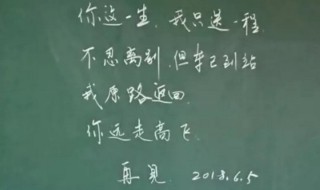 你这一生,我只送一程,
不忍离别,但车已到站
我原路返回.
你远走高飞.
再见. 2018.6.5